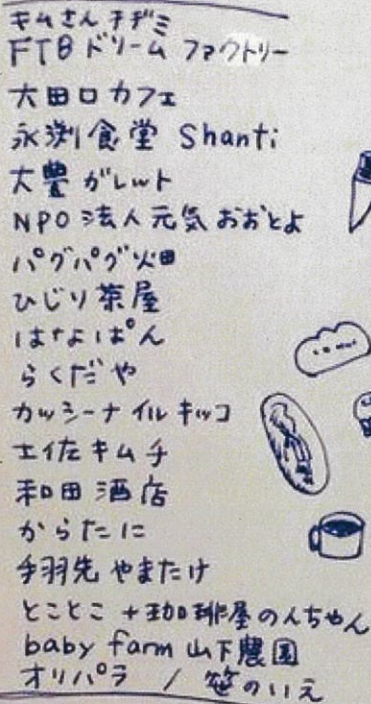 キムさんチヂミ
FTB ドリーム ファクトリー
大田口カフェ
永渕食堂 Shanti
大豊ガレット
NPO法人元気おおとよ
パグパグ畑
ひじり茶屋
はなよぱん
らくだや
カッシーナ イル キッコ
土佐キムチ
和田酒店
からたに
手羽先 やまたけ
とことこ +珈琲屋のんちゃん
baby farm 山下農園
オリパラ / 笹のいえ